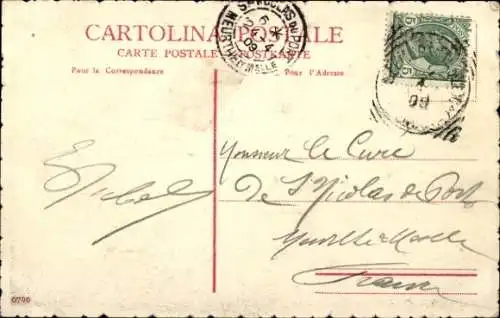 CARTOLINA POSTALE
CARTE POSTALE POSTKARTE
Pour la Correspondance
Pour l'Adresse
ST NICOLAS DU PORT
6 * 4
09
MEURTHE ET MOSELLE
5
5
4
09
Monsieur le Curé
De St Nicolas de Port
Meurthe & Moselle
France
0790